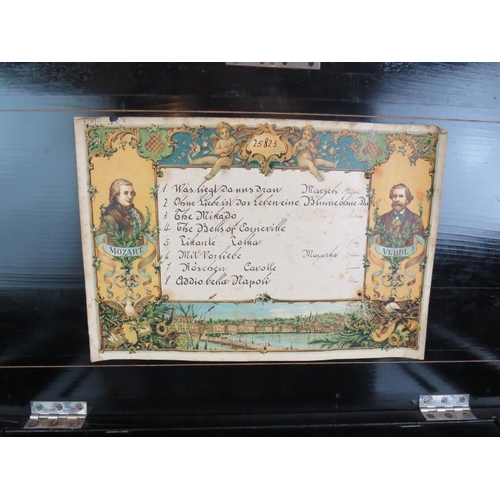 25823
1 Was liegt da uns dran Marsch
2 Ohne Liebe ist das Leben eine Blume ohne Duft
3 The Mikado
4 The Bells of Corneville
5 Pikante Polka
6 Mit Vorliebe Mazurka
7 Röschen Gavotte
8 Addio bella Napoli
MOZART
VERDI